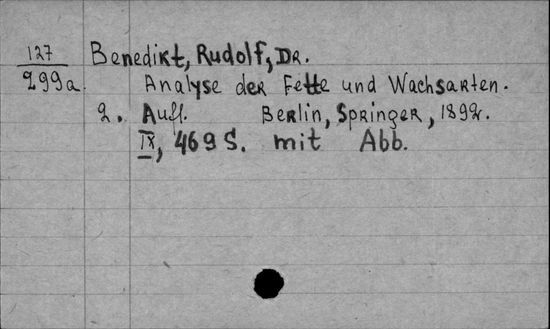 127 Benedikt, Rudolf, Dr.
299a. Analyse der Fette und Wachsarten.
2. Aufl. Berlin, Springer, 1892.
IX, 469 S. mit Abb.